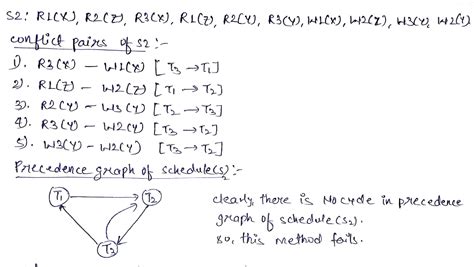 S2: R1(X), R2(Z), R3(X), R1(Z), R2(Y), R3(Y), W1(X), W2(Z), W3(Y), W2(Y)
conflict pairs of S2:-
1). R3(X) - W1(X) [T3 → T1]
2). R1(Z) - W2(Z) [T1 → T2]
3). R2(Y) - W3(Y) [T2 → T3]
4). R3(Y) - W2(Y) [T3 → T2]
5). W3(Y) - W2(Y) [T3 → T2]
Precedence graph of schedule(S2):-
T1
T2
clearly, there is No cycle in precedence
graph of schedule(S2).
so, this method fails.
T3